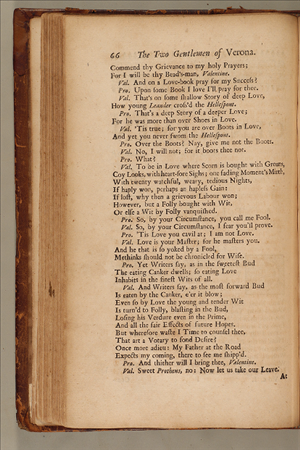 66 The Two Gentlemen of Verona.
Commend thy Grievance to my holy Prayers;
For I will be thy Bead's-man, Valentine.
Val. And on a Love-book pray for my Success?
Pro. Upon some Book I love I'll pray for thee.
Val. That's on some shallow Story of deep Love,
How young Leander cross'd the Hellespont.
Pro. That's a deep Story of a deeper Love;
For he was more than over Shoes in Love.
Val. 'Tis true; for you are over Boots in Love,
And yet you never swom the Hellespont.
Pro. Over the Boots? Nay, give me not the Boots.
Val. No, I will not; for it boots thee not.
Pro. What?
Val. To be in Love where Scorn is bought with Groans,
Coy Looks, with heart-sore Sighs; one fading Moment's Mirth,
With twenty watchful, weary, tedious Nights,
If haply won, perhaps a hapless Gain:
If lost, why then a grievous Labour won;
However, but a Folly bought with Wit,
Or else a Wit by Folly vanquished.
Pro. So, by your Circumstance, you call me Fool.
Val. So, by your Circumstance, I fear you'll prove.
Pro. 'Tis Love you cavil at; I am not Love.
Val. Love is your Master; for he masters you.
And he that is so yoked by a Fool,
Methinks should not be chronicled for Wise.
Pro. Yet Writers say, as in the sweetest Bud
The eating Canker dwells; so eating Love
Inhabits in the finest Wits of all.
Val. And Writers say, as the most forward Bud
Is eaten by the Canker, e'er it blow;
Even so by Love the young and tender Wit
Is turn'd to Folly, blasting in the Bud,
Losing his Verdure even in the Prime,
And all the fair Effects of future Hopes.
But wherefore waste I Time to counsel thee,
That art a Votary to fond Desire?
Once more adieu: My Father at the Road
Expects my coming, there to see me shipp'd.
Pro. And thither will I bring thee, Valentine.
Val. Sweet Protheus, no: Now let us take our Leave.
At